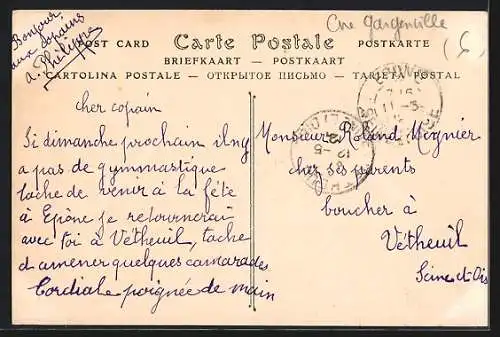 Bonjour
aux copains
a. Philippe
Cne Gargenville
POST CARD Carte Postale POSTKARTE
BRIEFKAART — POSTKAART
CARTOLINA POSTALE — ОТКРЫТОЕ ПИСЬМО — TARJETA POSTAL
cher copain
Si dimanche prochain il ny
a pas de gymmastique
tache de venir à la fête
à Epône je retournerai
avec toi à Vétheuil, tache
d amener quelques camarades
Cordiale poignée de main
Monsieur Roland Mignier
chez ses parents
boucher à
Vétheuil
Seine et Ois